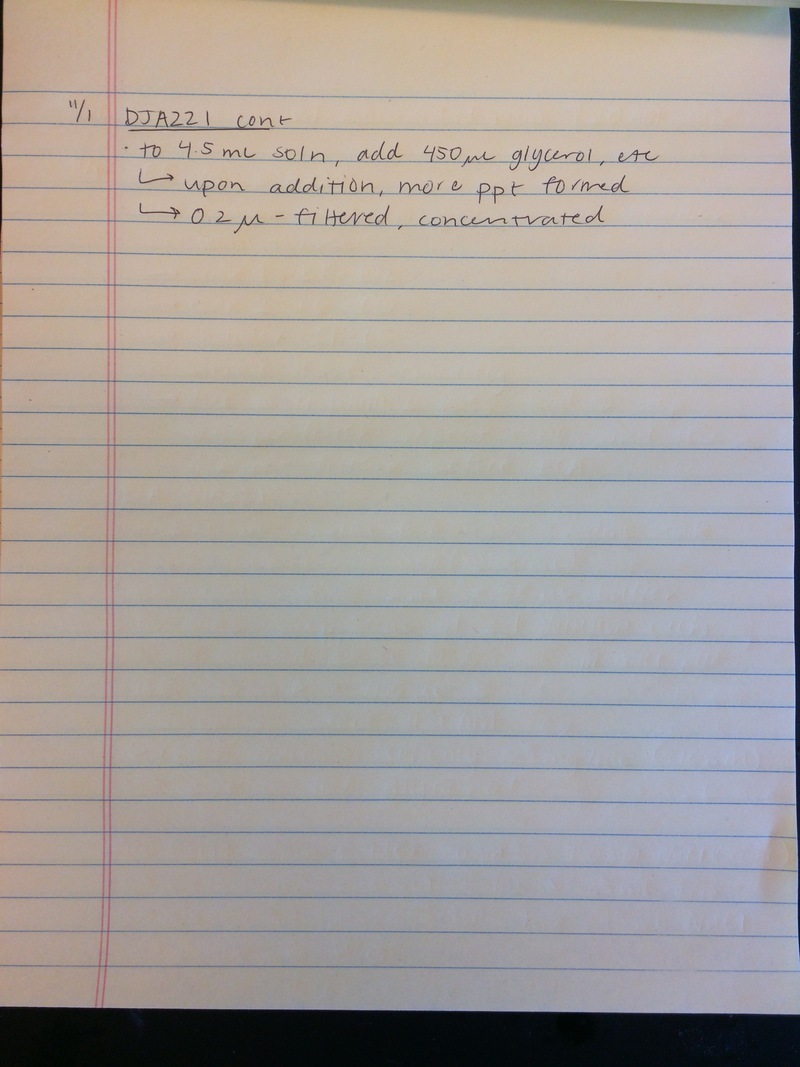 11/1 DJA221 cont
· to 4.5 mL soln, add 450 µL glycerol, etc
↳ upon addition, more ppt formed
↳ 0.2 µ - filtered, concentrated